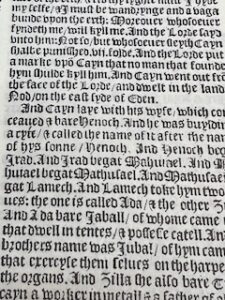 my selfe/ and I must be wandrynge and a vaga
bunde vpon the erth: Moreouer whosoeuer
fyndeth me/ will kyll me. And the Lorde sayd
vnto him: Not so/ but whosoeuer sleyth Cayn
shalbe punished .vi. folde. And the Lorde put
a marke vpō Cayn that no man that founde
hym shulde kyll him. And Cayn went out frō
the face of the Lorde/ and dwelt in the land
Nod/ on the east syde of Eden.
And Cayn laye with his wyfe/ which con
ceaued & bare Henoch. And he was buyldin
a cyte/ & called the name of it after the na
of hys sonne/ Henoch. And Henoch beg
Irad. And Irad begat Mahuiael. And M
huiael begat Mathusael. And Mathusae
gat Lamech. And Lamech toke hym two
ues: the one is called Ada/ & the other Z
And Ada bare Jaball/ of whome came
that dwell in tentes/ & possesse catell. And
brothers name was Jubal/ of hym cam
that exercyse them selues on the harpe
the organs. And Zilla she also bare T
cayn a worker in metall & a father of a